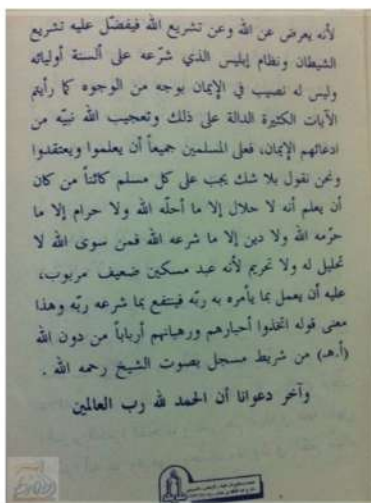 لأنه يعرض عن الله وعن تشريع الله فيفضّل عليه تشريع
الشيطان ونظام إبليس الذي شرّعه على ألسنة أوليائه
وليس له نصيب في الإيمان بوجه من الوجوه كما رأيتم
الآيات الكثيرة الدالة على ذلك وتعجيب الله نبيّه من
ادعائهم الإيمان، فعلى المسلمين جميعاً أن يعلموا ويعتقدوا
ونحن نقول بلا شك يجب على كل مسلم كائناً من كان
أن يعلم أنه لا حلال إلا ما أحلّه الله ولا حرام إلا ما
حرّمه الله ولا دين إلا ما شرعه الله فمن سوى الله لا
تحليل له ولا تحريم لأنه عبد مسكين ضعيف مربوب،
عليه أن يعمل بما يأمره به ربّه فينتفع بما شرعه ربّه وهذا
معنى قوله اتخذوا أحبارهم ورهبانهم أرباباً من دون الله
(أ.هـ) من شريط مسجل بصوت الشيخ رحمه الله .
وآخر دعوانا أن الحمد لله رب العالمين